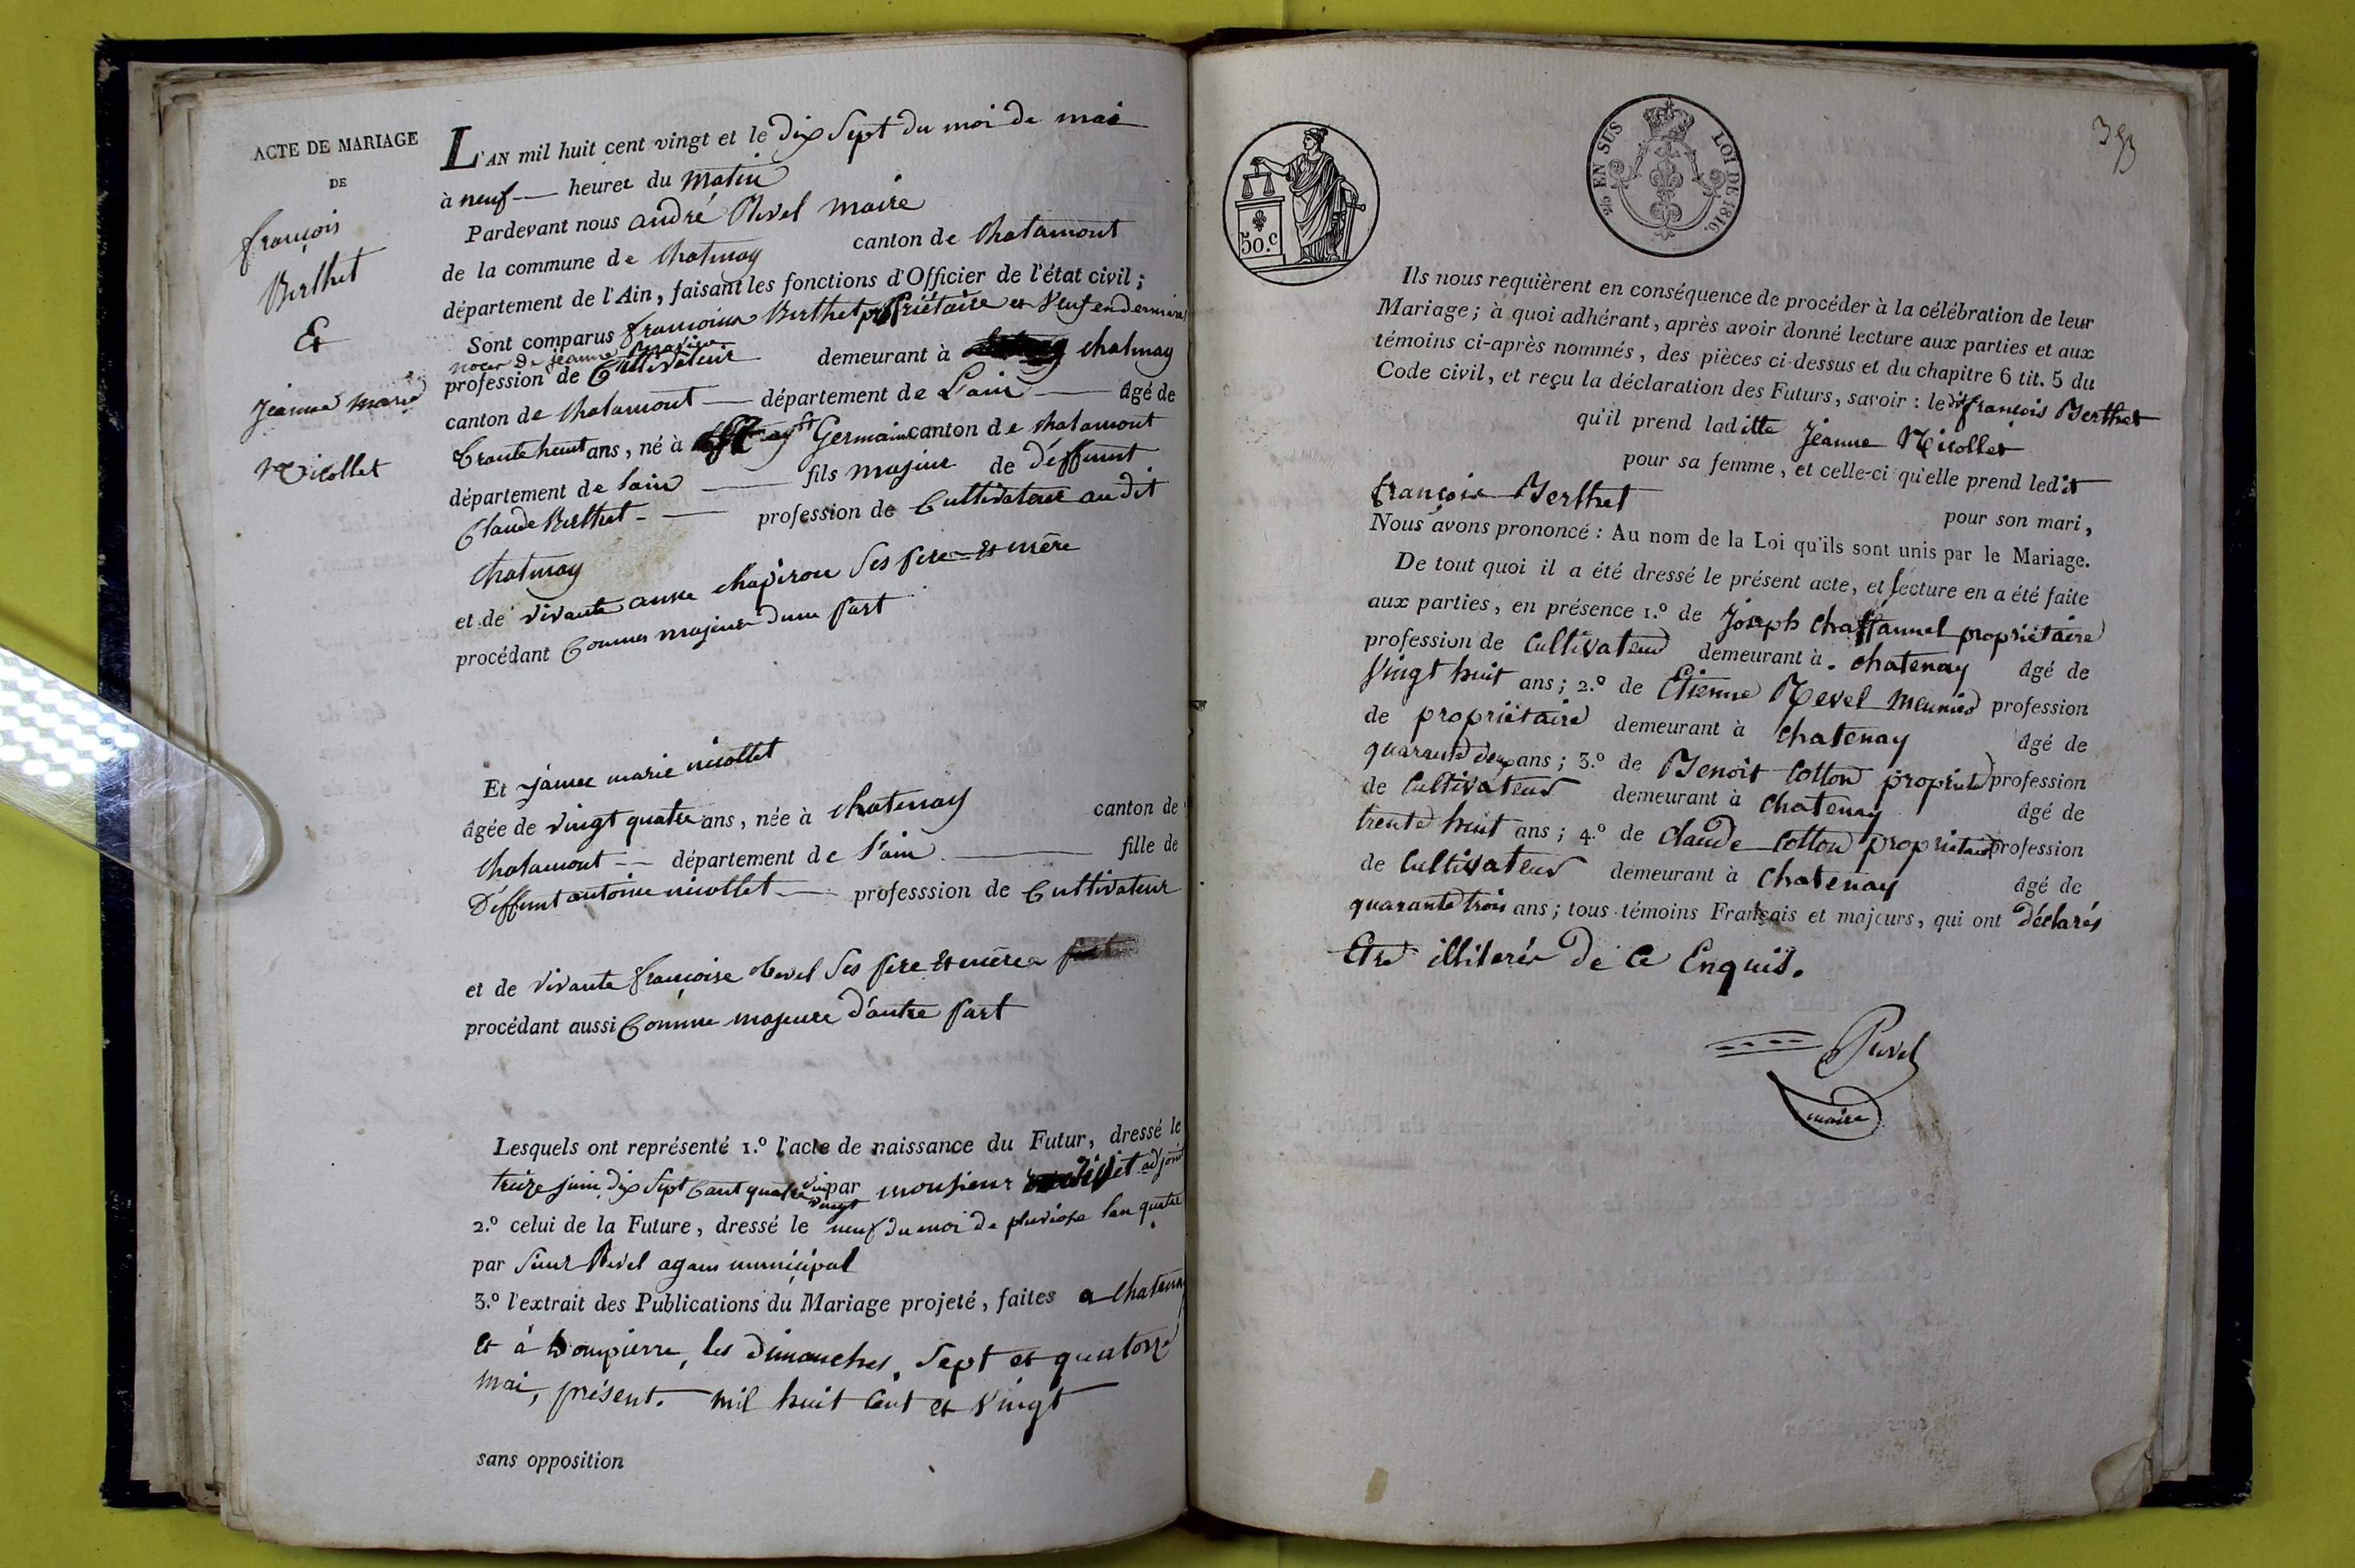 ACTE DE MARIAGE
DE
françois
Berthet
Et
Jeanne marie
Nicollet
L'AN mil huit cent vingt et le dix Sept du moi de mai
à neuf heures du Matin
Pardevant nous andré Revel maire
de la commune de Chatenay canton de Chalamont
département de l'Ain, faisant les fonctions d'Officier de l'état civil;
Sont comparus françois Berthet propriétaire et Veuf en derniere
noces de jeanne
profession de Cultivateur demeurant à chatenay
canton de Chalamont département de L'ain âgé de
trente huit ans, né à St Germain canton de chalamont
département de lain fils majeur de deffunt
Claude Berthet profession de Cultivateur au dit
Chatenay
et de vivante anne chapiron Ses pere Et mère
procédant Comme majeur dune part
Et jeanne marie nicollet
âgée de vingt quatre ans, née à Chatenay canton de
Chalamont département de l'ain fille de
Déffunt antoine nicollet professsion de Cultivateur
et de vivante françoise Revel Ses pere Et mère
procédant aussi Comme majeure d'autre part
Lesquels ont représenté 1.º l'acte de naissance du Futur, dressé le
treize juin dix Sept Cent quatre vingt par monsieur adjoint
2.º celui de la Future, dressé le neuf du moi de pluviose lan quatre
par Sieur Revel agent municipal
3.º l'extrait des Publications du Mariage projeté, faites a Chatenay
et à Dompierre, les Dimanches, Sept et quatorze
mai, présent. mil huit Cent et Vingt
sans opposition
50.c
2/5 EN SUS LOI DE 1816.
Ils nous requièrent en conséquence de procéder à la célébration de leur
Mariage; à quoi adhérant, après avoir donné lecture aux parties et aux
témoins ci-après nommés, des pièces ci-dessus et du chapitre 6 tit. 5 du
Code civil, et reçu la déclaration des Futurs, savoir: le dit françois Berthet
qu'il prend laditte Jeanne Nicollet
pour sa femme, et celle-ci qu'elle prend ledit
françois Berthet pour son mari,
Nous avons prononcé: Au nom de la Loi qu'ils sont unis par le Mariage.
De tout quoi il a été dressé le présent acte, et lecture en a été faite
aux parties, en présence 1.º de Joseph Chaffannel propriétaire
profession de Cultivateur demeurant à chatenay âgé de
Vingt huit ans; 2.º de Etienne Revel Meunier profession
de propriétaire demeurant à Chatenay âgé de
quarante deux ans; 3.º de Benoit Cotton propriete profession
de Cultivateur demeurant à Chatenay âgé de
trente huit ans; 4.º de Claude Cotton propriétaire profession
de Cultivateur demeurant à Chatenay âgé de
quarante trois ans; tous témoins Français et majeurs, qui ont déclarés
Etre illiterés de Ce Enquis.
Revel
maire